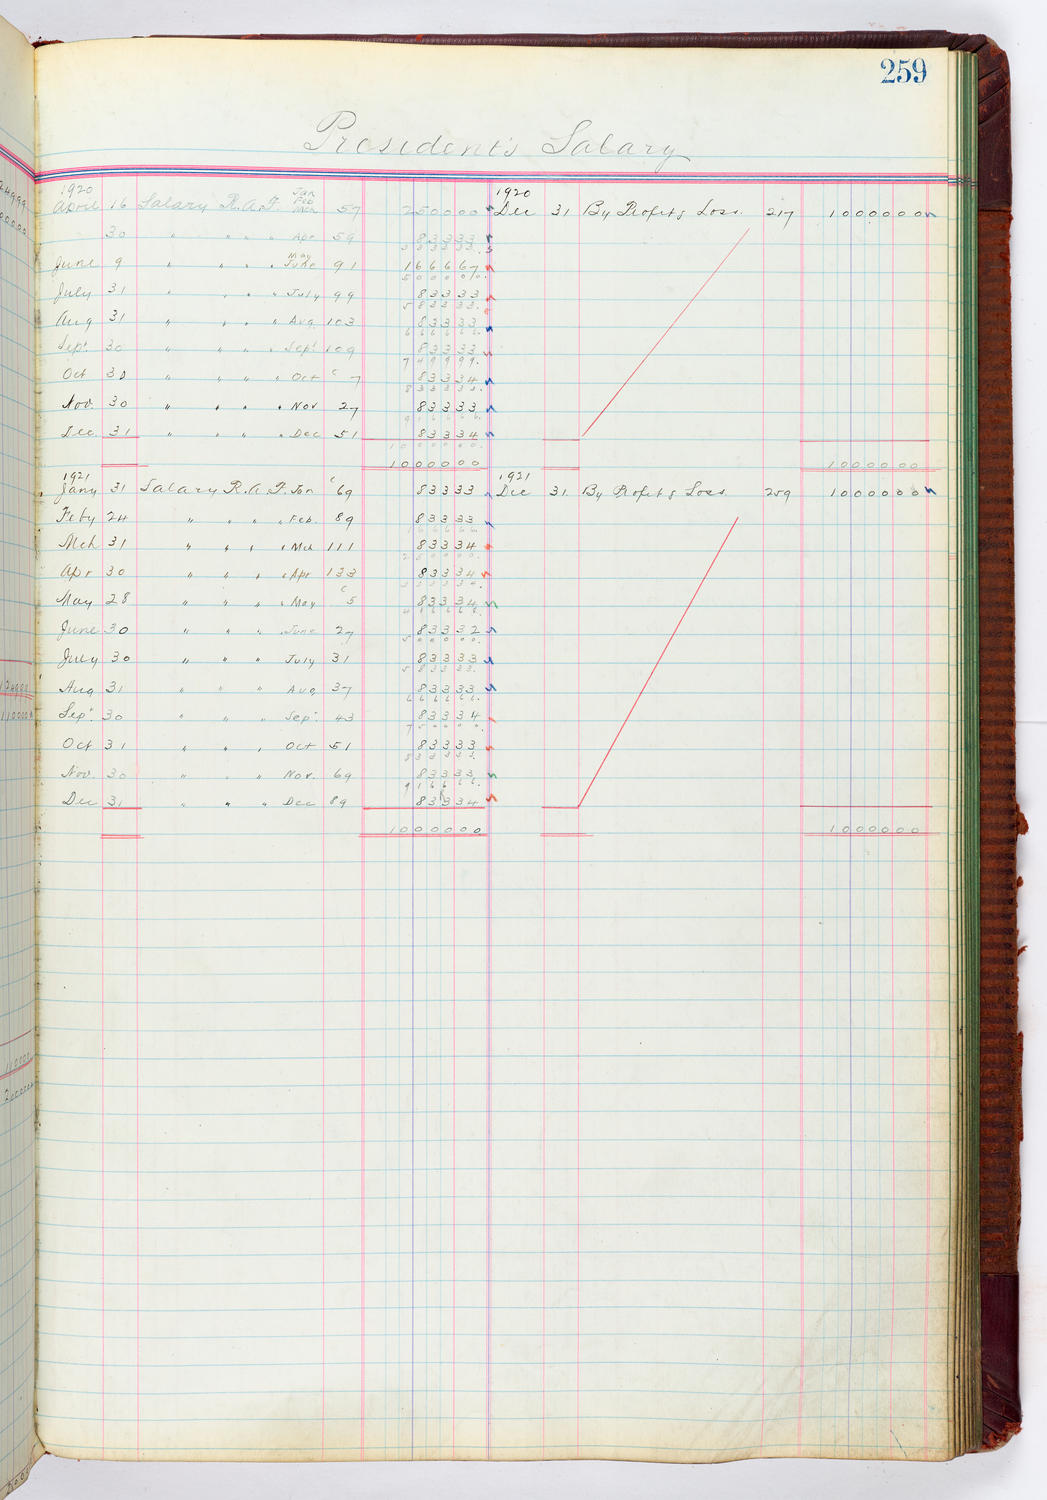 259
President's Salary
1920
April 16 Salary R. A. F. Jan Feb Mch 57 250000
30 " " " " Apr 59 83333
333333
June 9 " " " " May June 91 166667
500000
July 31 " " " " July 99 83333
583333
Aug 31 " " " " Aug. 103 83333
666666
Sept. 30 " " " " Sept 109 83333
749999
Oct 30 " " " " Oct C 7 83334
833333
Nov. 30 " " " " Nov 27 83333
916666
Dec. 31 " " " " Dec 51 83334
1000000
1000000
1920
Dec 31 By Profit & Loss. 217 1000000
1000000
1921
Jany 31 Salary R. A. F. Jan C 69 83333
Feby 24 " " " " Feb. 89 83333
166666
Mch 31 " " " " Mch 111 83334
250000
Apr 30 " " " " Apr 133 83334
333334
May 28 " " " " May C 5 83334
416668
June 30 " " " " June 27 83332
500000
July 30 " " " July 31 83333
583333
Aug 31 " " " Aug 37 83333
666666
Sep. 30 " " " Sep. 43 83334
750000
Oct 31 " " " Oct 51 83333
833333
Nov. 30 " " " Nov. 69 83333
916666
Dec 31 " " " Dec 89 83334
1000000
1921
Dec 31 By Profit & Loss 259 1000000
1000000